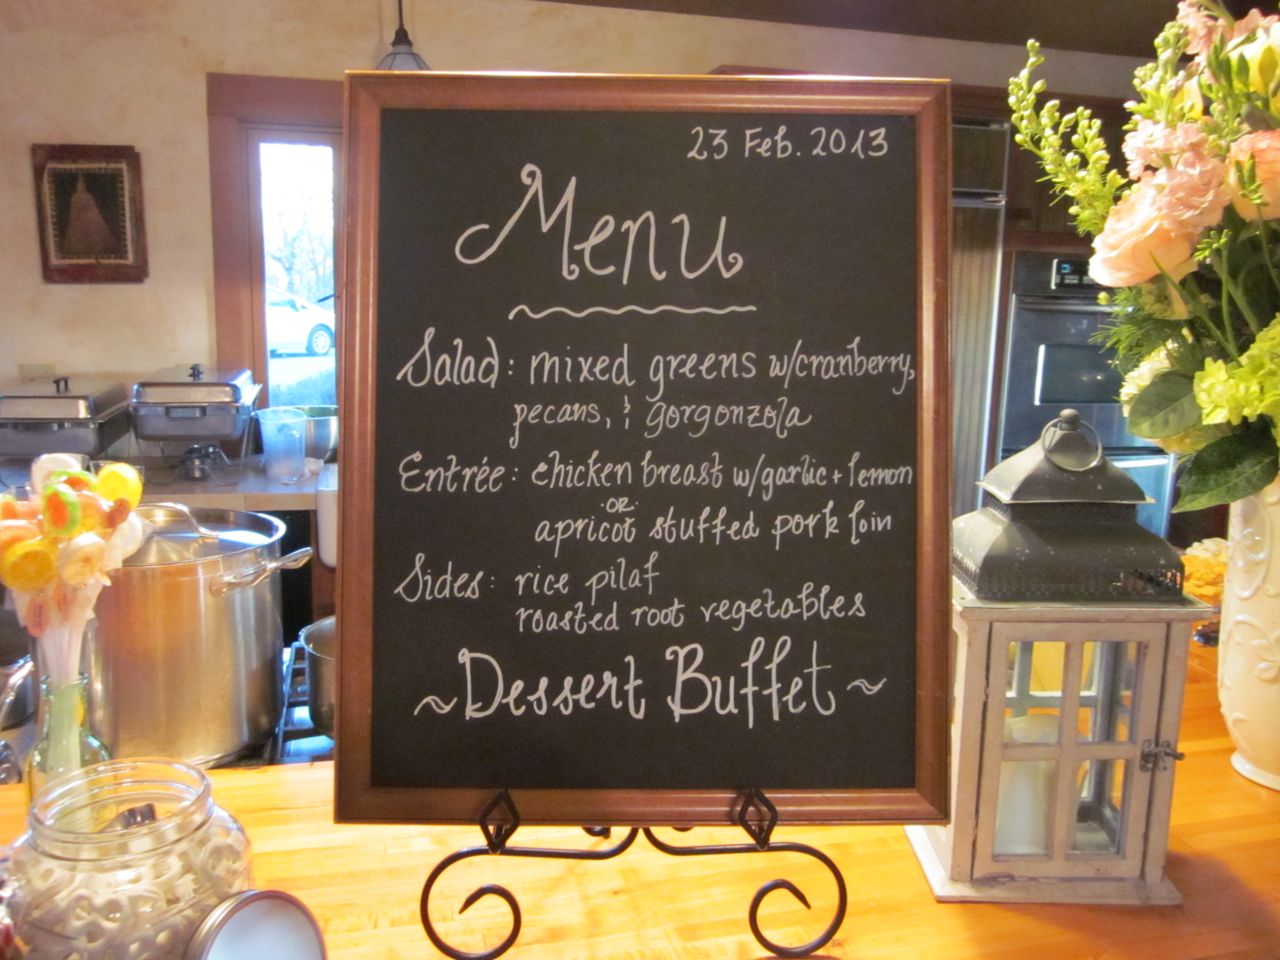 23 Feb. 2013
Menu
Salad: mixed greens w/cranberry,
pecans, & gorgonzola
Entrée: chicken breast w/garlic + lemon
·OR·
apricot stuffed pork loin
Sides: rice pilaf
roasted root vegetables
~Dessert Buffet~